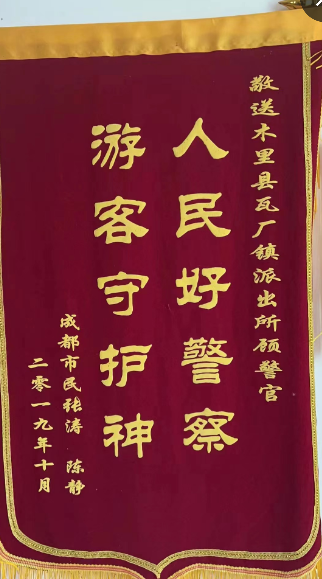 敬送木里县瓦厂镇派出所顾警官
人民好警察
游客守护神
成都市民张涛 陈静
二零一九年十月